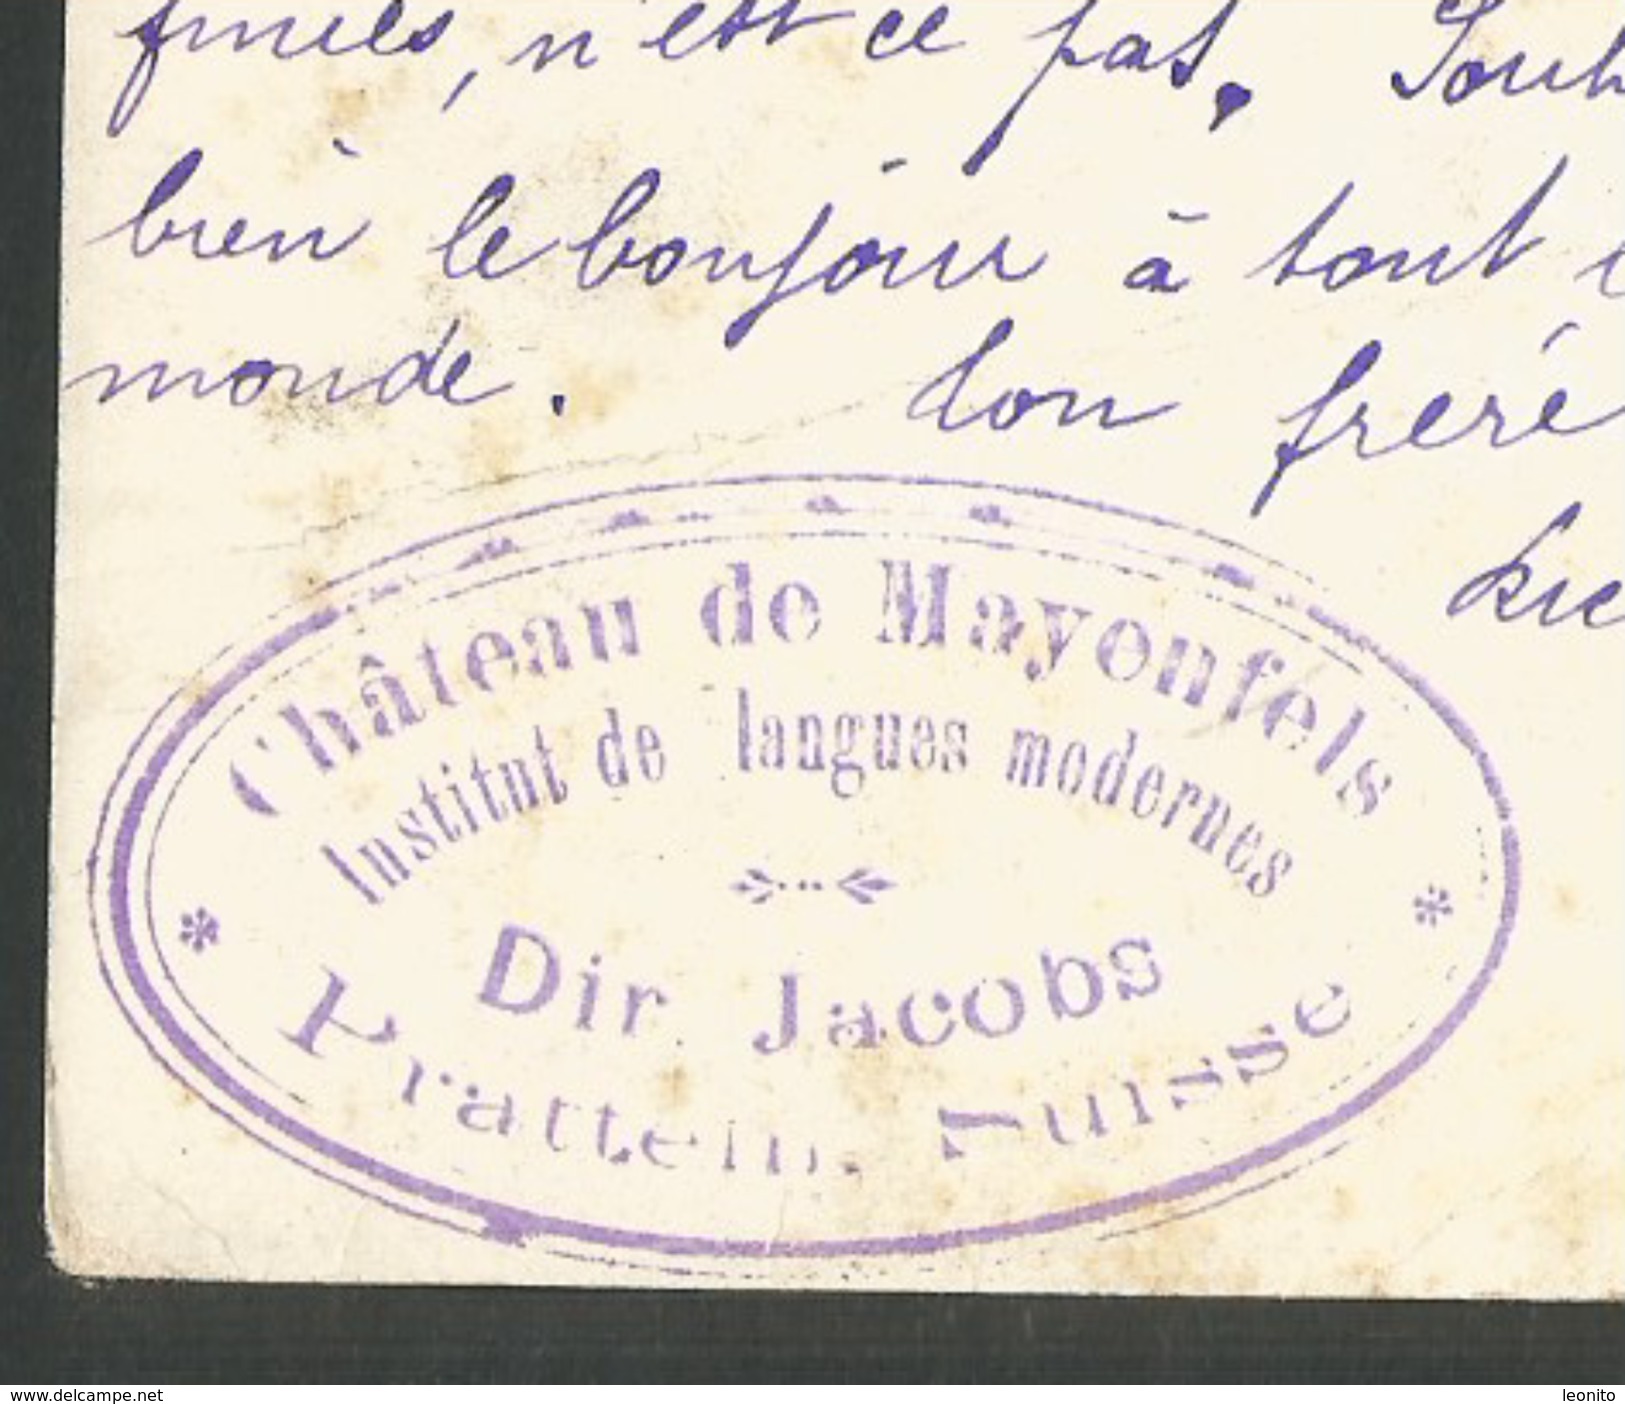 finies, n'est ce pas.
bien le bonjour à tout
monde. Ton freré
Château de Mayenfels
Institut de langues modernes
Dir. Jacobs
Pratteln, Suisse
www.delcampe.net
leonito